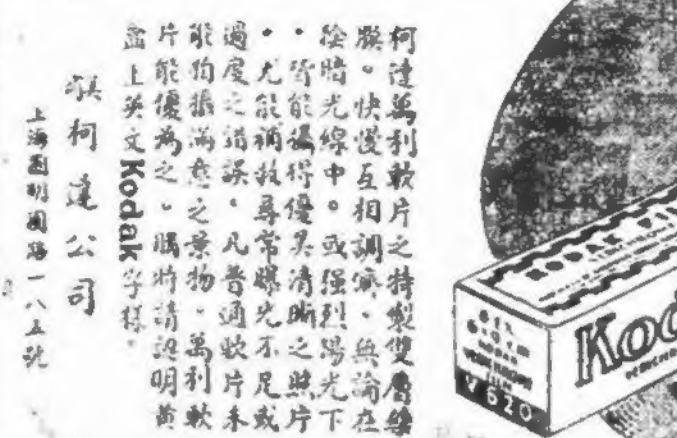 柯達萬利軟片之特製雙層藥
膜。快慢互相調濟。無論在
陰暗光線中。或强烈陽光下
。皆能攝得優美清晰之照片
。尤能補救尋常曝光不足或
過度之錯誤。凡普通軟片未
能拍攝滿意之景物。萬利軟
片能優為之。購時請認明黄
盒上英文Kodak字樣。
柯達公司
上海圓明園路一八五號
KODAK
6 x
KODAK
VERICHROME
FILM
V 620
Kod